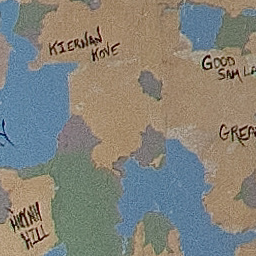 KIERNAN
KOVE
GOOD
SAM LA
GREA
HUYNH
HILL